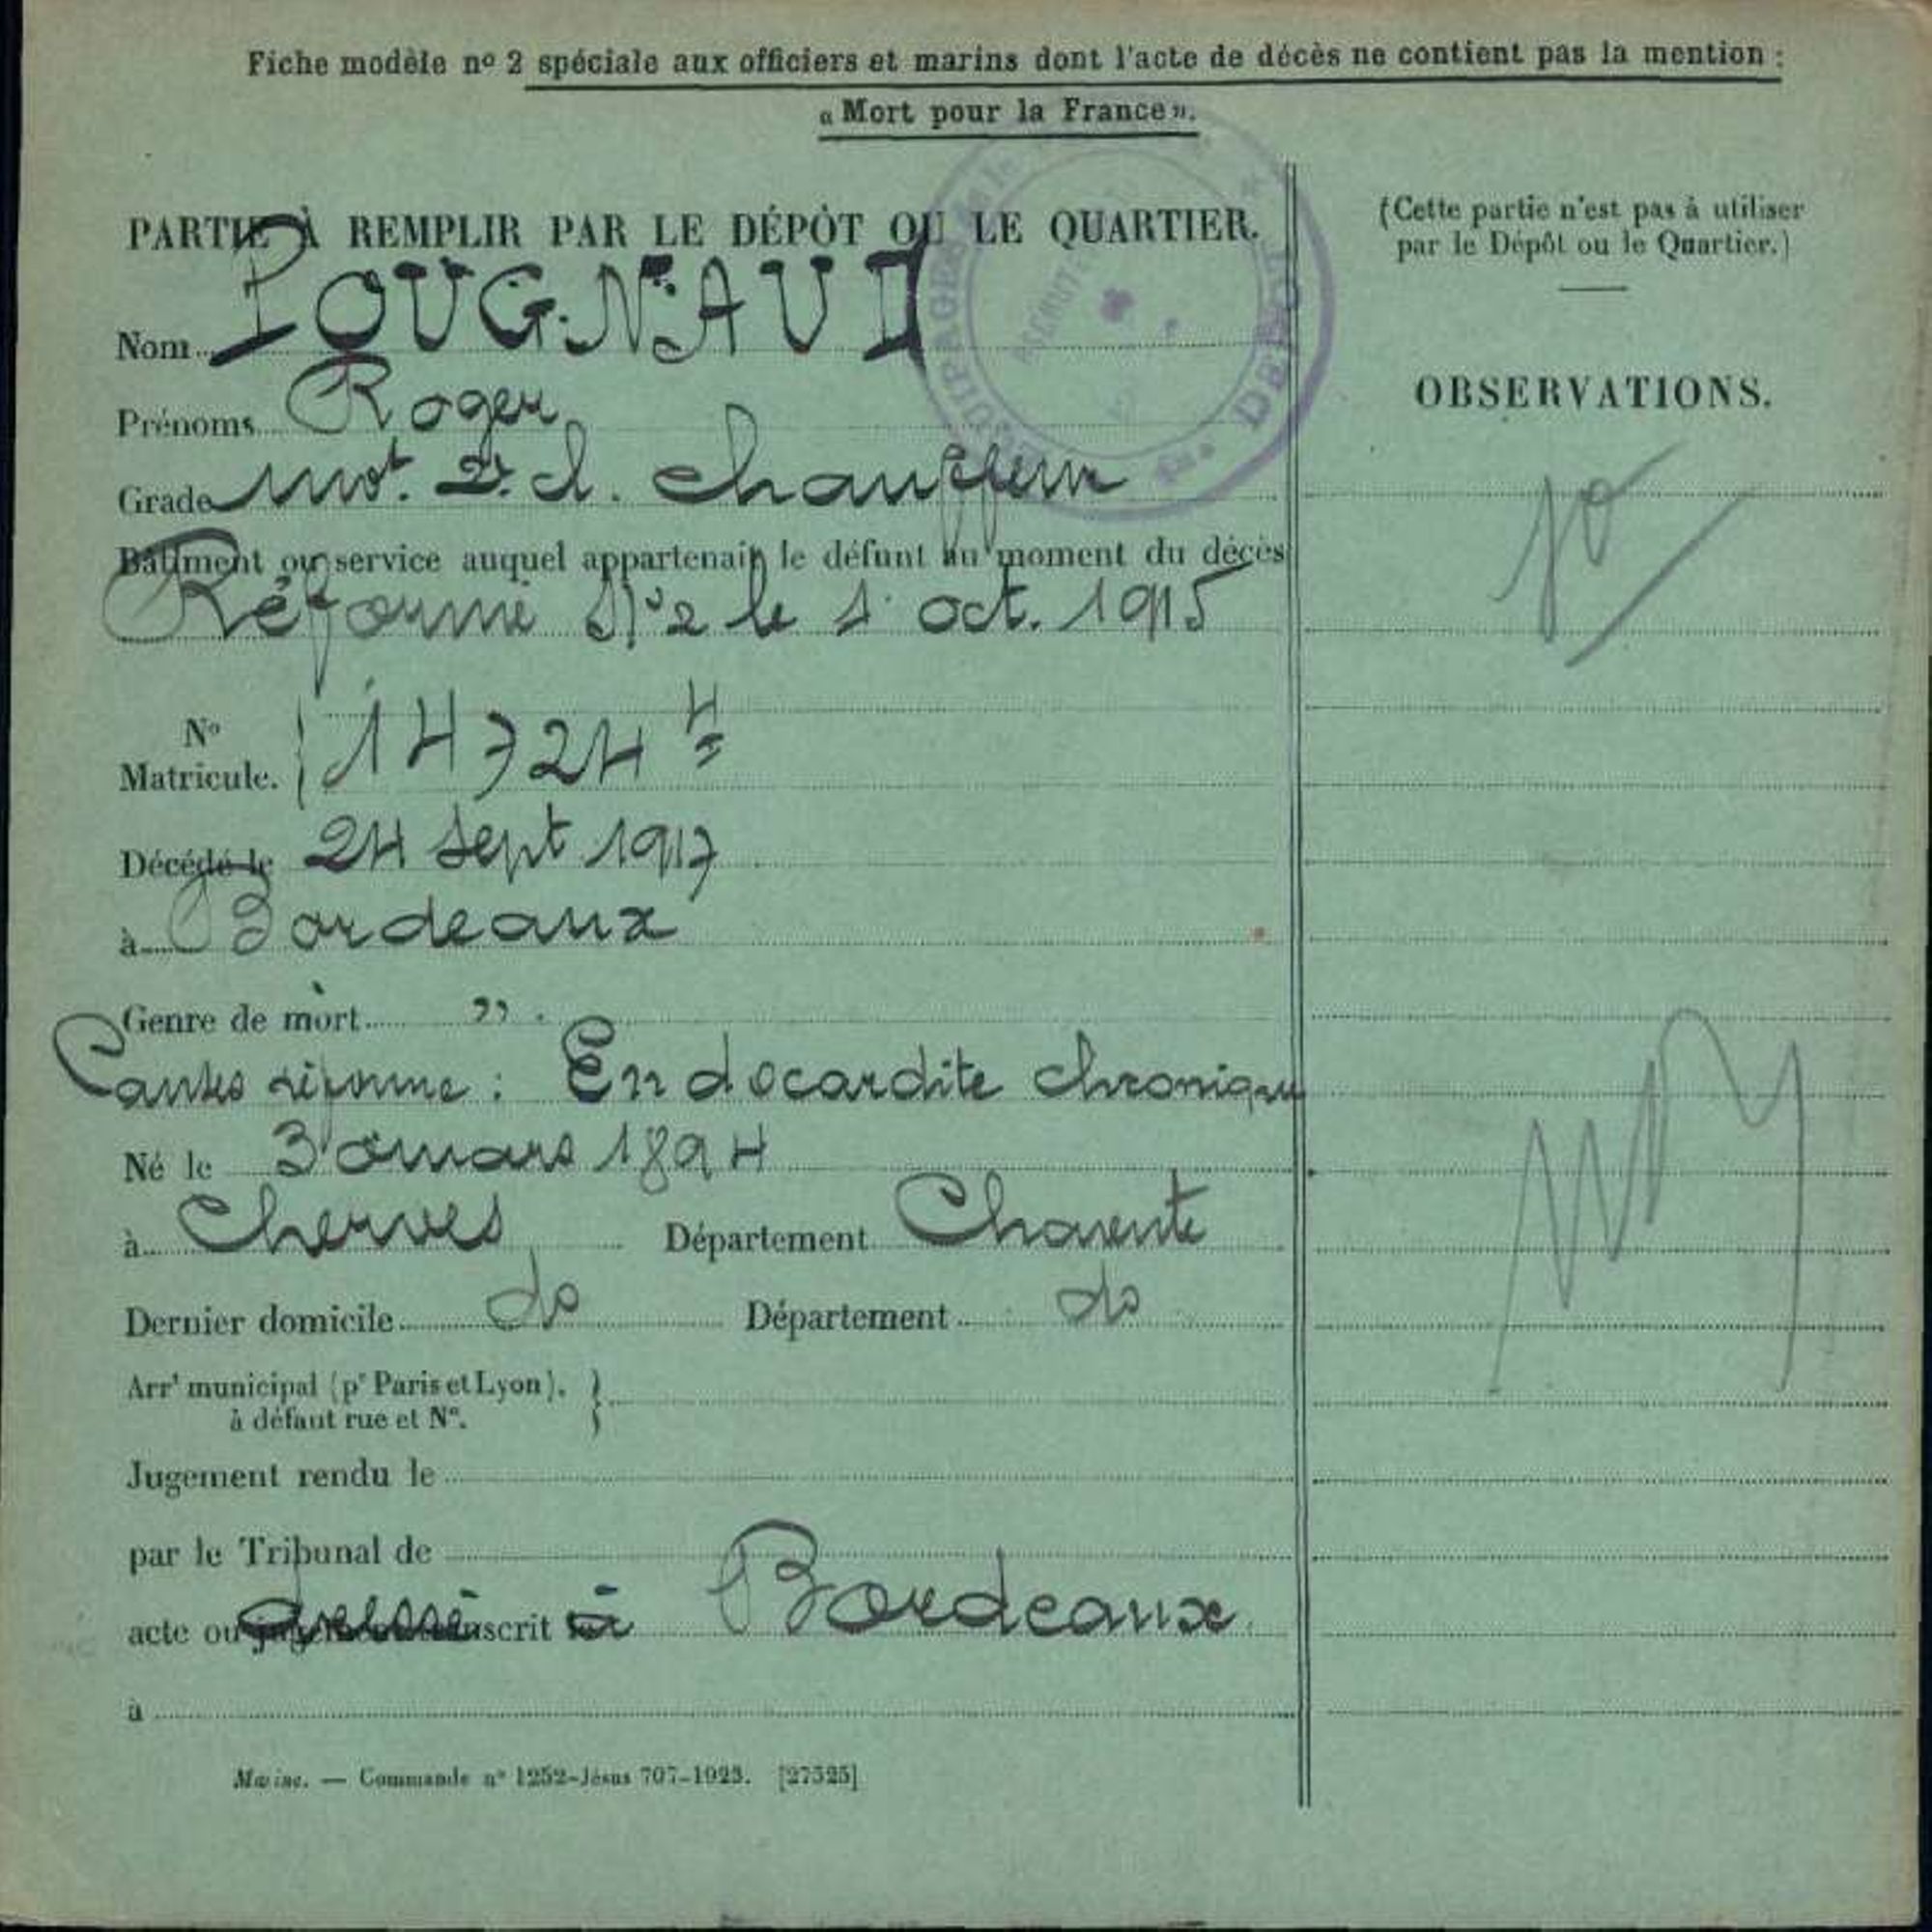 Fiche modèle nº 2 spéciale aux officiers et marins dont l'acte de décès ne contient pas la mention :
« Mort pour la France ».
PARTIE À REMPLIR PAR LE DÉPÔT OU LE QUARTIER.
(Cette partie n'est pas à utiliser
par le Dépôt ou le Quartier.)
Nom POUGNAUD
Prénoms Roger
OBSERVATIONS.
Grade mot. 2e cl. chauffeur
Bâtiment ou service auquel appartenait le défunt au moment du décès
Réformé Nº2 le 1 oct. 1915
Nº
Matricule. 14724 4
Décédé le 24 Sept 1917
à Bordeaux
Genre de mort „ .
Causes réforme : Endocardite chronique
Né le 30 mars 1894
à Cherves Département Charente
Dernier domicile do Département do
Arrt municipal (pr Paris et Lyon),
à défaut rue et Nº.
Jugement rendu le
par le Tribunal de
acte ou inscrit à Bordeaux
à
Marine. — Commande nº 1252-Jésus 707-1923. [27525]